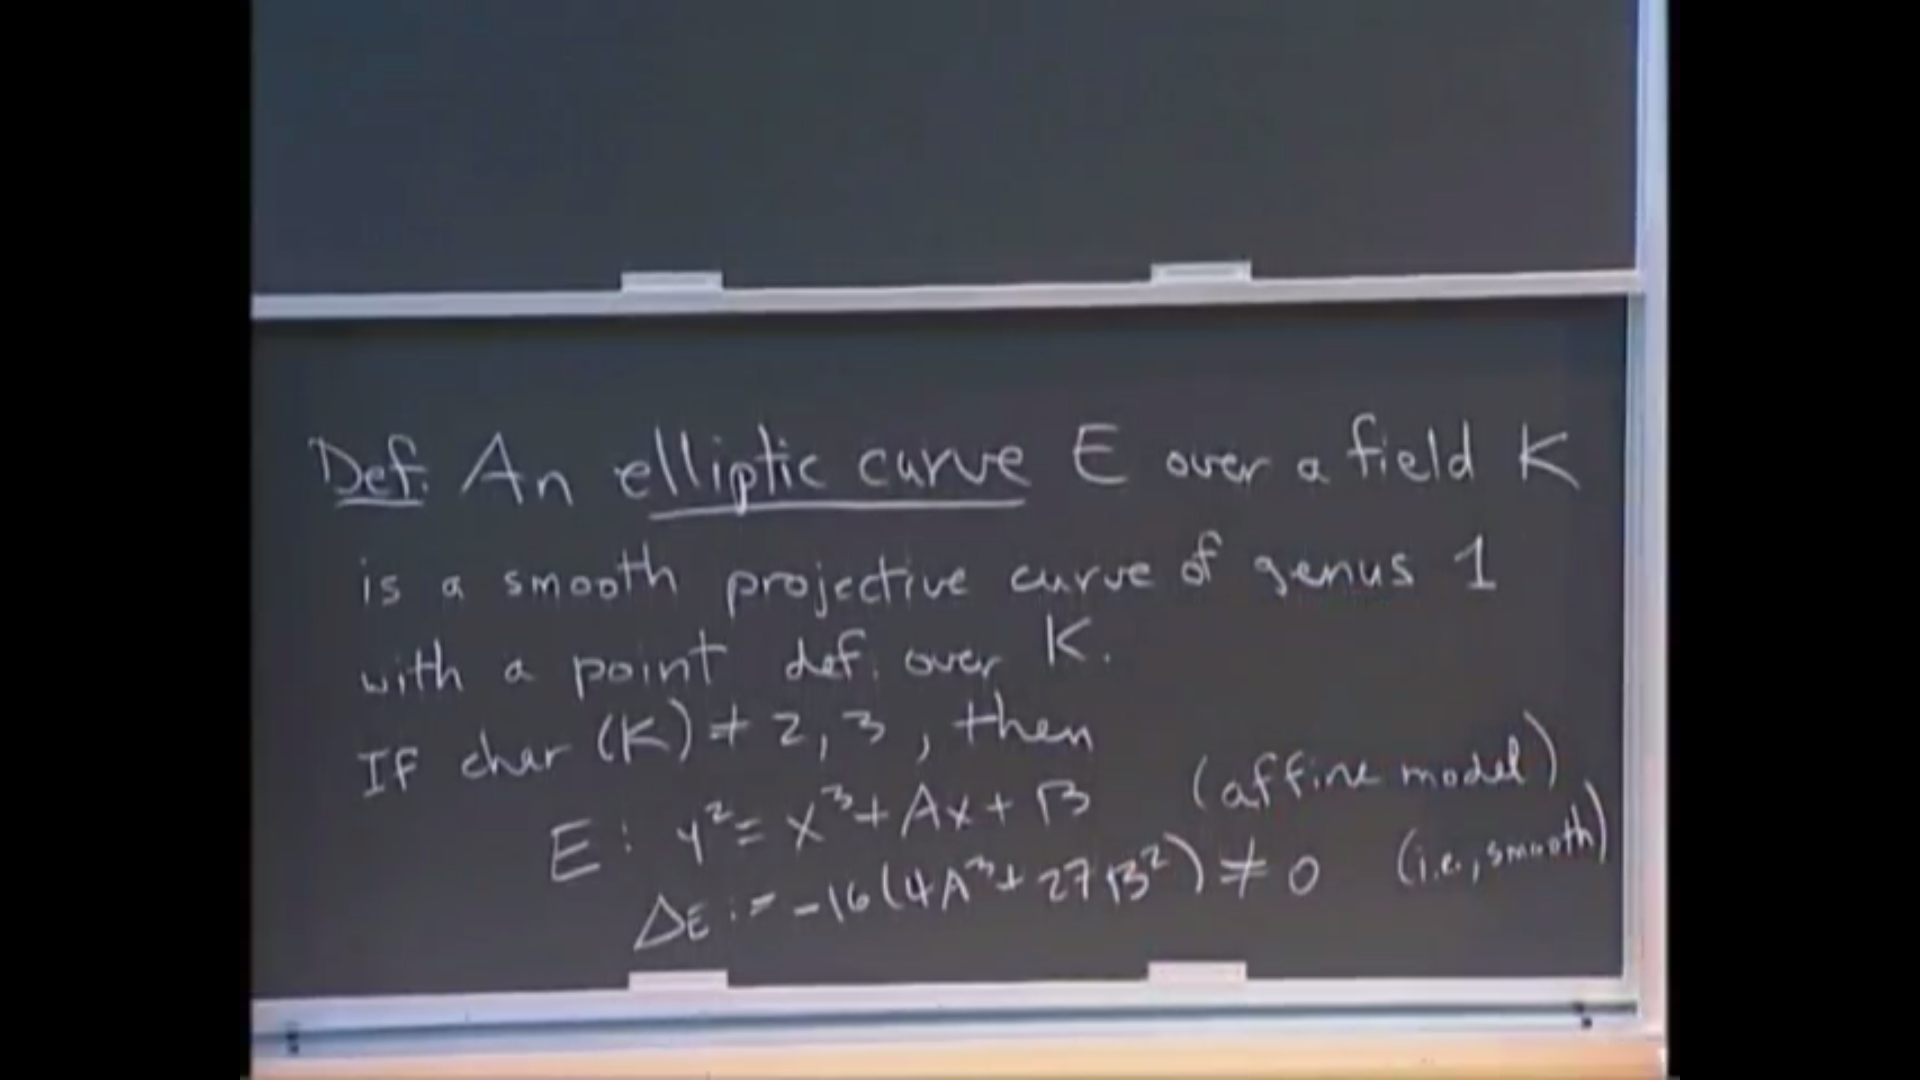 Def. An elliptic curve E over a field K
is a smooth projective curve of genus 1
with a point def. over K.
If char (K) ≠ 2, 3, then
E: y² = x³ + Ax + B (affine model)
Δ_E := -16(4A³ + 27B²) ≠ 0 (i.e., smooth)